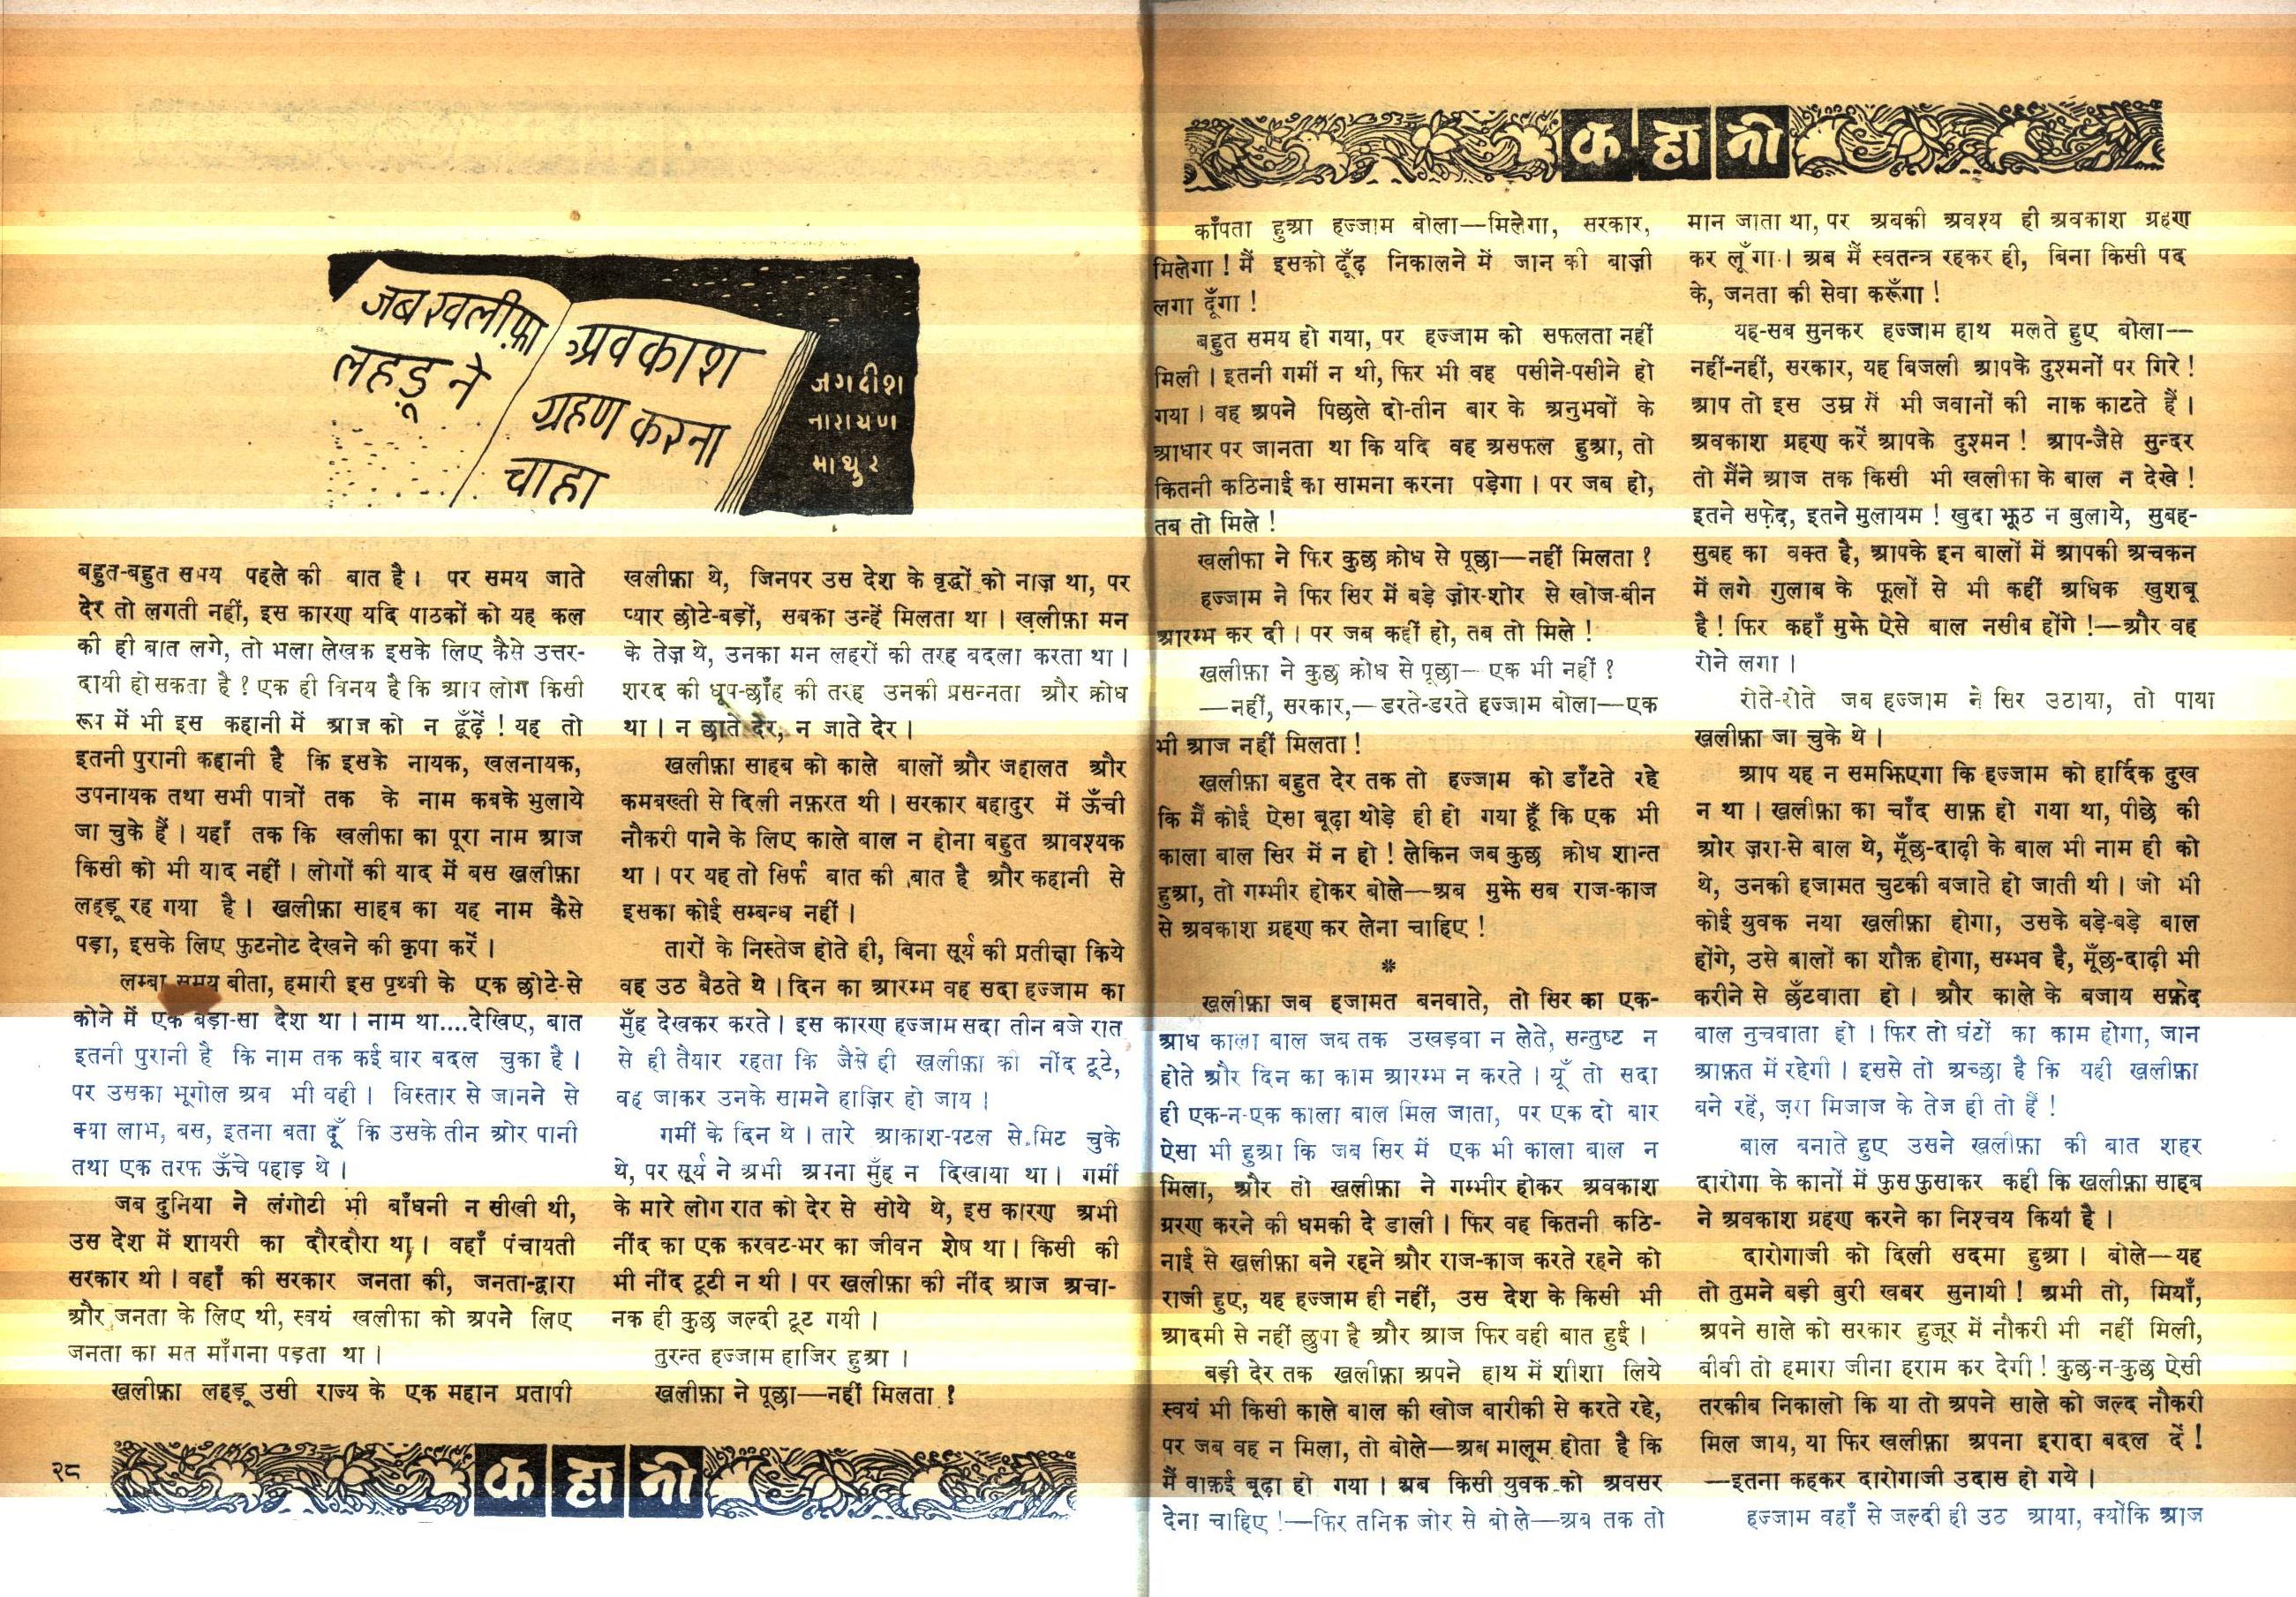 जब खलीफ़ा
लहड़ू ने
अवकाश
ग्रहण करना
चाहा
जगदीश
नारायण
माथुर
बहुत-बहुत समय पहले की बात है। पर समय जाते
देर तो लगती नहीं, इस कारण यदि पाठकों को यह कल
की ही बात लगे, तो भला लेखक इसके लिए कैसे उत्तर-
दायी हो सकता है ? एक ही विनय है कि आप लोग किसी
रूप में भी इस कहानी में आज को न ढूँढ़ें ! यह तो
इतनी पुरानी कहानी है कि इसके नायक, खलनायक,
उपनायक तथा सभी पात्रों तक के नाम कबके भुलाये
जा चुके हैं। यहाँ तक कि खलीफा का पूरा नाम आज
किसी को भी याद नहीं। लोगों की याद में बस खलीफ़ा
लहड़ू रह गया है। खलीफ़ा साहब का यह नाम कैसे
पड़ा, इसके लिए फ़ुटनोट देखने की कृपा करें।
लम्बा समय बीता, हमारी इस पृथ्वी के एक छोटे-से
कोने में एक बड़ा-सा देश था। नाम था....देखिए, बात
इतनी पुरानी है कि नाम तक कई बार बदल चुका है।
पर उसका भूगोल अब भी वही। विस्तार से जानने से
क्या लाभ, बस, इतना बता दूँ कि उसके तीन ओर पानी
तथा एक तरफ ऊँचे पहाड़ थे।
जब दुनिया ने लंगोटी भी बाँधनी न सीखी थी,
उस देश में शायरी का दौरदौरा था। वहाँ पंचायती
सरकार थी। वहाँ की सरकार जनता की, जनता-द्वारा
और जनता के लिए थी, स्वयं खलीफा को अपने लिए
जनता का मत माँगना पड़ता था।
खलीफ़ा लहड़ू उसी राज्य के एक महान प्रतापी
खलीफ़ा थे, जिनपर उस देश के वृद्धों को नाज़ था, पर
प्यार छोटे-बड़ों, सबका उन्हें मिलता था। ख़लीफ़ा मन
के तेज़ थे, उनका मन लहरों की तरह बदला करता था।
शरद की धूप-छाँह की तरह उनकी प्रसन्नता और क्रोध
था। न छाते देर, न जाते देर।
खलीफ़ा साहब को काले बालों और जहालत और
कमबख्ती से दिली नफ़रत थी। सरकार बहादुर में ऊँची
नौकरी पाने के लिए काले बाल न होना बहुत आवश्यक
था। पर यह तो सिर्फ बात की बात है और कहानी से
इसका कोई सम्बन्ध नहीं।
तारों के निस्तेज होते ही, बिना सूर्य की प्रतीक्षा किये
वह उठ बैठते थे। दिन का आरम्भ वह सदा हज्जाम का
मुँह देखकर करते। इस कारण हज्जाम सदा तीन बजे रात
से ही तैयार रहता कि जैसे ही खलीफ़ा की नींद टूटे,
वह जाकर उनके सामने हाज़िर हो जाय।
गर्मी के दिन थे। तारे आकाश-पटल से मिट चुके
थे, पर सूर्य ने अभी अपना मुँह न दिखाया था। गर्मी
के मारे लोग रात को देर से सोये थे, इस कारण अभी
नींद का एक करवट-भर का जीवन शेष था। किसी की
भी नींद टूटी न थी। पर खलीफ़ा की नींद आज अचा-
नक ही कुछ जल्दी टूट गयी।
तुरन्त हज्जाम हाजिर हुआ।
खलीफ़ा ने पूछा—नहीं मिलता ?
२८
कहानी
कहानी
काँपता हुआ हज्जाम बोला—मिलेगा, सरकार,
मिलेगा ! मैं इसको ढूँढ़ निकालने में जान की बाज़ी
लगा दूँगा !
बहुत समय हो गया, पर हज्जाम को सफलता नहीं
मिली। इतनी गर्मी न थी, फिर भी वह पसीने-पसीने हो
गया। वह अपने पिछले दो-तीन बार के अनुभवों के
आधार पर जानता था कि यदि वह असफल हुआ, तो
कितनी कठिनाई का सामना करना पड़ेगा। पर जब हो,
तब तो मिले !
खलीफा ने फिर कुछ क्रोध से पूछा—नहीं मिलता ?
हज्जाम ने फिर सिर में बड़े ज़ोर-शोर से खोज-बीन
आरम्भ कर दी। पर जब कहीं हो, तब तो मिले !
खलीफ़ा ने कुछ क्रोध से पूछा—एक भी नहीं ?
—नहीं, सरकार,—डरते-डरते हज्जाम बोला—एक
भी आज नहीं मिलता !
खलीफ़ा बहुत देर तक तो हज्जाम को डाँटते रहे
कि मैं कोई ऐसा बूढ़ा थोड़े ही हो गया हूँ कि एक भी
काला बाल सिर में न हो ! लेकिन जब कुछ क्रोध शान्त
हुआ, तो गम्भीर होकर बोले—अब मुझे सब राज-काज
से अवकाश ग्रहण कर लेना चाहिए !
*
खलीफ़ा जब हजामत बनवाते, तो सिर का एक-
आध काला बाल जब तक उखड़वा न लेते, सन्तुष्ट न
होते और दिन का काम आरम्भ न करते। यूँ तो सदा
ही एक-न-एक काला बाल मिल जाता, पर एक दो बार
ऐसा भी हुआ कि जब सिर में एक भी काला बाल न
मिला, और तो खलीफ़ा ने गम्भीर होकर अवकाश
ग्ररण करने की धमकी दे डाली। फिर वह कितनी कठि-
नाई से खलीफ़ा बने रहने और राज-काज करते रहने को
राजी हुए, यह हज्जाम ही नहीं, उस देश के किसी भी
आदमी से नहीं छुपा है और आज फिर वही बात हुई।
बड़ी देर तक खलीफ़ा अपने हाथ में शीशा लिये
स्वयं भी किसी काले बाल की खोज बारीकी से करते रहे,
पर जब वह न मिला, तो बोले—अब मालूम होता है कि
मैं वाक़ई बूढ़ा हो गया। अब किसी युवक को अवसर
देना चाहिए !—फिर तनिक जोर से बोले—अब तक तो
मान जाता था, पर अबकी अवश्य ही अवकाश ग्रहण
कर लूँगा। अब मैं स्वतन्त्र रहकर ही, बिना किसी पद
के, जनता की सेवा करूँगा !
यह-सब सुनकर हज्जाम हाथ मलते हुए बोला—
नहीं-नहीं, सरकार, यह बिजली आपके दुश्मनों पर गिरे !
आप तो इस उम्र में भी जवानों की नाक काटते हैं।
अवकाश ग्रहण करें आपके दुश्मन ! आप-जैसे सुन्दर
तो मैंने आज तक किसी भी खलीफा के बाल न देखे !
इतने सफ़ेद, इतने मुलायम ! खुदा झूठ न बुलाये, सुबह-
सुबह का वक्त है, आपके इन बालों में आपकी अचकन
में लगे गुलाब के फूलों से भी कहीं अधिक खुशबू
है ! फिर कहाँ मुझे ऐसे बाल नसीब होंगे !—और वह
रोने लगा।
रोते-रोते जब हज्जाम ने सिर उठाया, तो पाया
खलीफ़ा जा चुके थे।
आप यह न समझिएगा कि हज्जाम को हार्दिक दुख
न था। खलीफ़ा का चाँद साफ़ हो गया था, पीछे की
ओर ज़रा-से बाल थे, मूँछ-दाढ़ी के बाल भी नाम ही को
थे, उनकी हजामत चुटकी बजाते हो जाती थी। जो भी
कोई युवक नया खलीफ़ा होगा, उसके बड़े-बड़े बाल
होंगे, उसे बालों का शौक़ होगा, सम्भव है, मूँछ-दाढ़ी भी
करीने से छँटवाता हो। और काले के बजाय सफ़ेद
बाल नुचवाता हो। फिर तो घंटों का काम होगा, जान
आफ़त में रहेगी। इससे तो अच्छा है कि यही खलीफ़ा
बने रहें, ज़रा मिजाज के तेज ही तो हैं !
बाल बनाते हुए उसने खलीफ़ा की बात शहर
दारोगा के कानों में फुसफुसाकर कही कि खलीफ़ा साहब
ने अवकाश ग्रहण करने का निश्चय किया है।
दारोगाजी को दिली सदमा हुआ। बोले—यह
तो तुमने बड़ी बुरी खबर सुनायी ! अभी तो, मियाँ,
अपने साले को सरकार हुजूर में नौकरी भी नहीं मिली,
बीवी तो हमारा जीना हराम कर देगी ! कुछ-न-कुछ ऐसी
तरकीब निकालो कि या तो अपने साले को जल्द नौकरी
मिल जाय, या फिर खलीफ़ा अपना इरादा बदल दें !
—इतना कहकर दारोगाजी उदास हो गये।
हज्जाम वहाँ से जल्दी ही उठ आया, क्योंकि आज